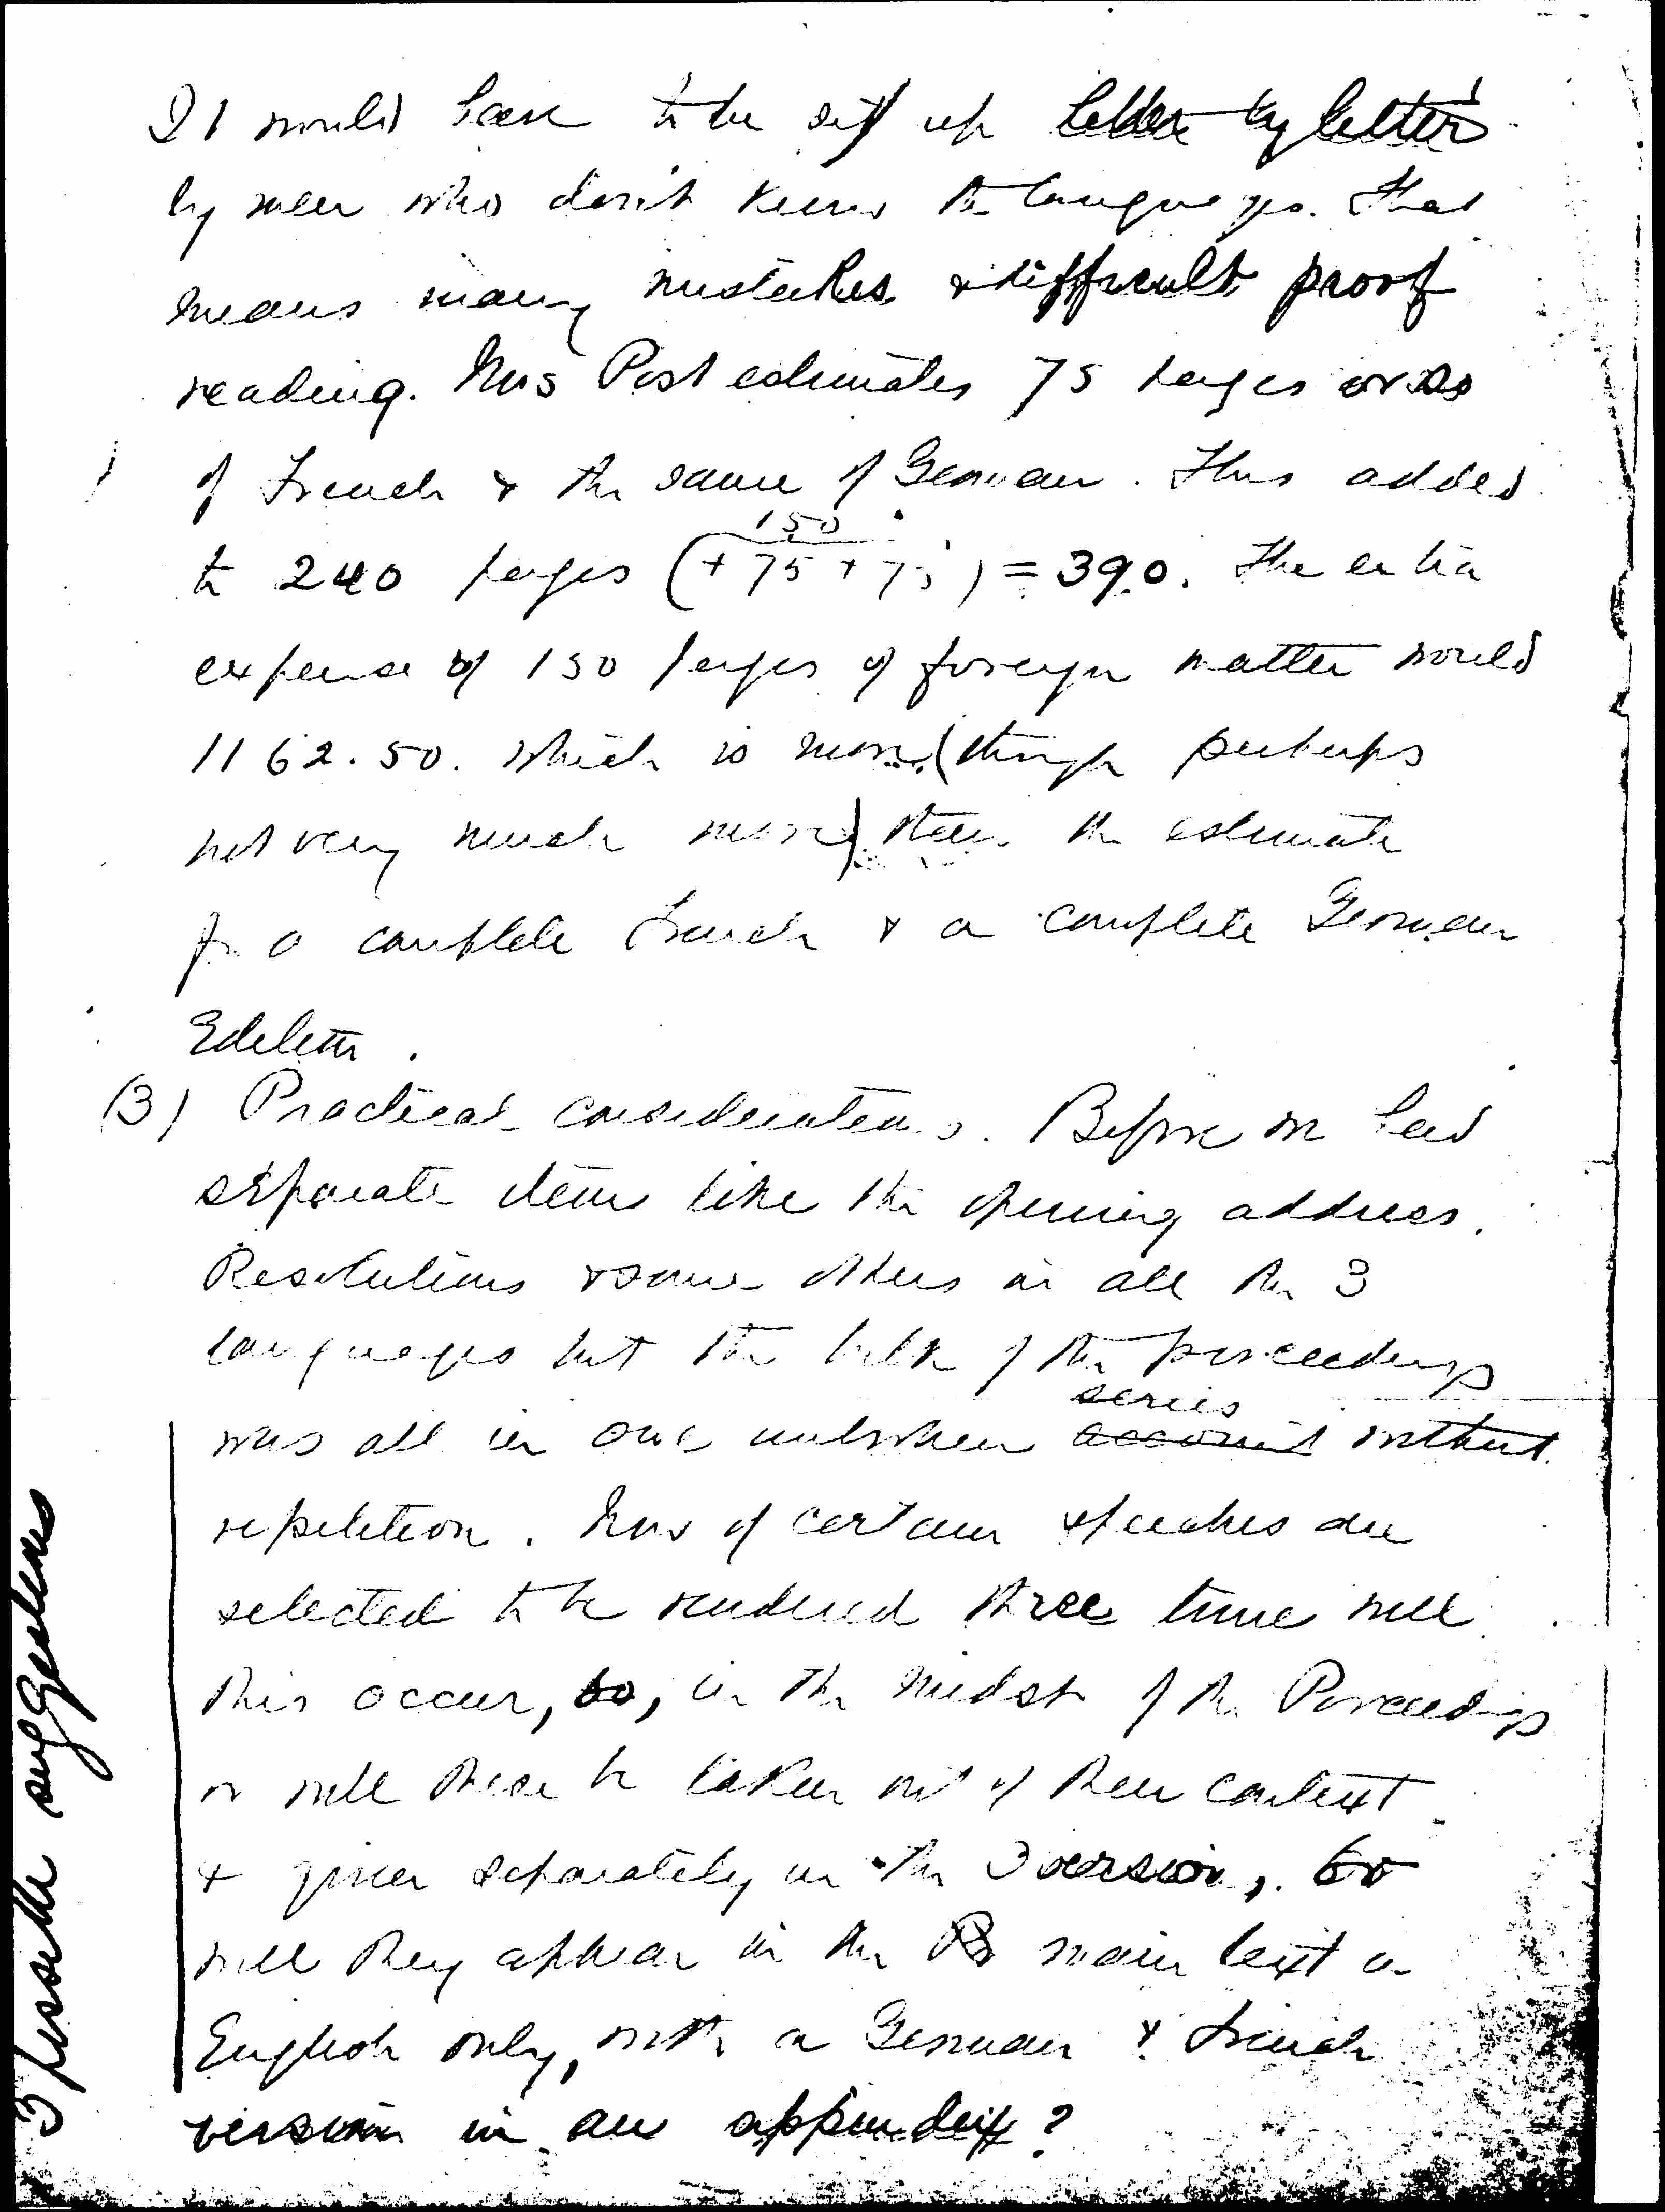 It would have to be set up letter by letter
by men who don't know the languages. That
means many mistakes & difficult proof
reading. Mrs Post estimates 75 pages or so
of French & the same of German. This added
150
to 240 pages (+ 75 + 75) = 390. The extra
expense of 150 pages of foreign matter would
1162.50. which is more (though perhaps
not very much more) than the estimate
for a complete French & a complete German
Edition.
(3) Practical considerations. Before we had
separate items like the opening address.
Resolutions & some others in all the 3
languages but the bulk of the proceedings
series
was all in one unbroken account without
repetition. Now if certain speeches are
selected to be rendered three time will
this occur, so, in the midst of the Proceedings
or will these be taken out of their context
& given separately in the 3 version, or
will they appear in the Pr main text in
English only, with a German & French
version in an appendix?
3 possible suggestions